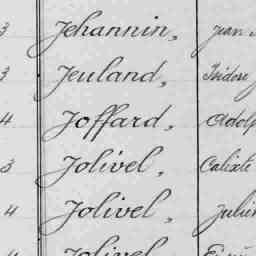 3 Jehannin, Jean
3 Jeuland, Isidore
4 Joffard, Adolp
3 Jolivel, Calixte
4 Jolivel, Julien
4 Jolivel